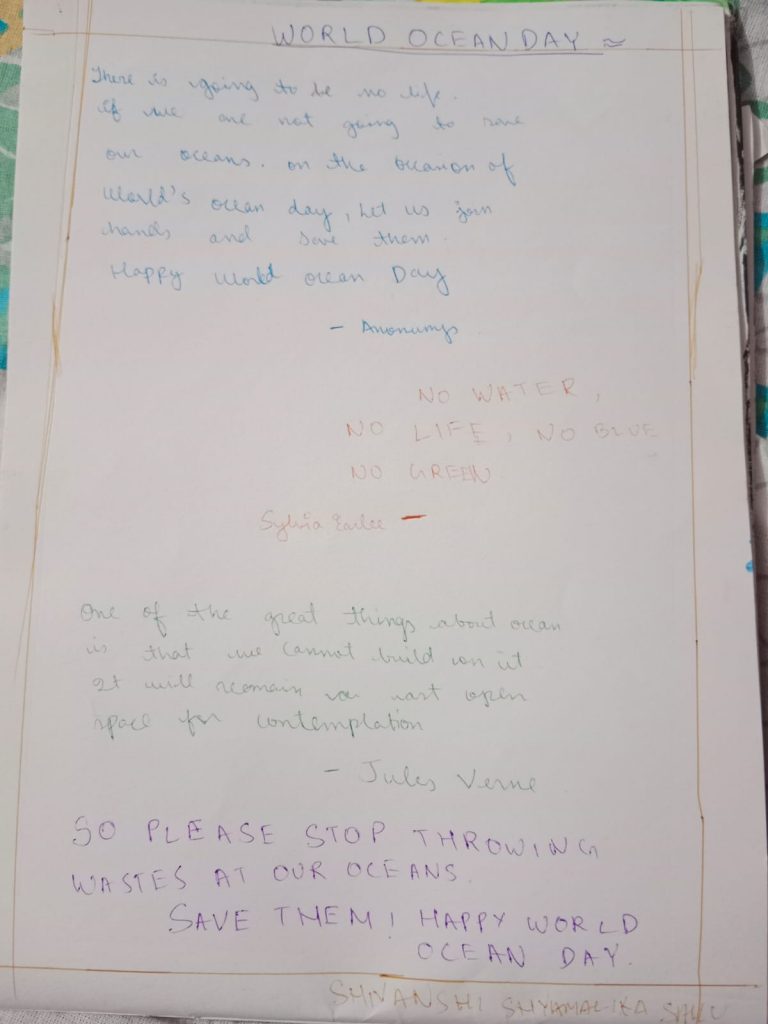 WORLD OCEAN DAY ≈
There is going to be no life.
If we are not going to save
our oceans. on the occasion of
World's ocean day, Let us join
hands and save them.
Happy World ocean Day
- Anonumys
NO WATER,
NO LIFE, NO BLUE
NO GREEN
Sylvia Earlee -
One of the great things about ocean
is that we cannot build on it
It will remain vast open
space for contemplation
- Jules Verne
SO PLEASE STOP THROWING
WASTES AT OUR OCEANS.
SAVE THEM! HAPPY WORLD
OCEAN DAY.
SHIVANSHI SHYAMALIKA SAHU